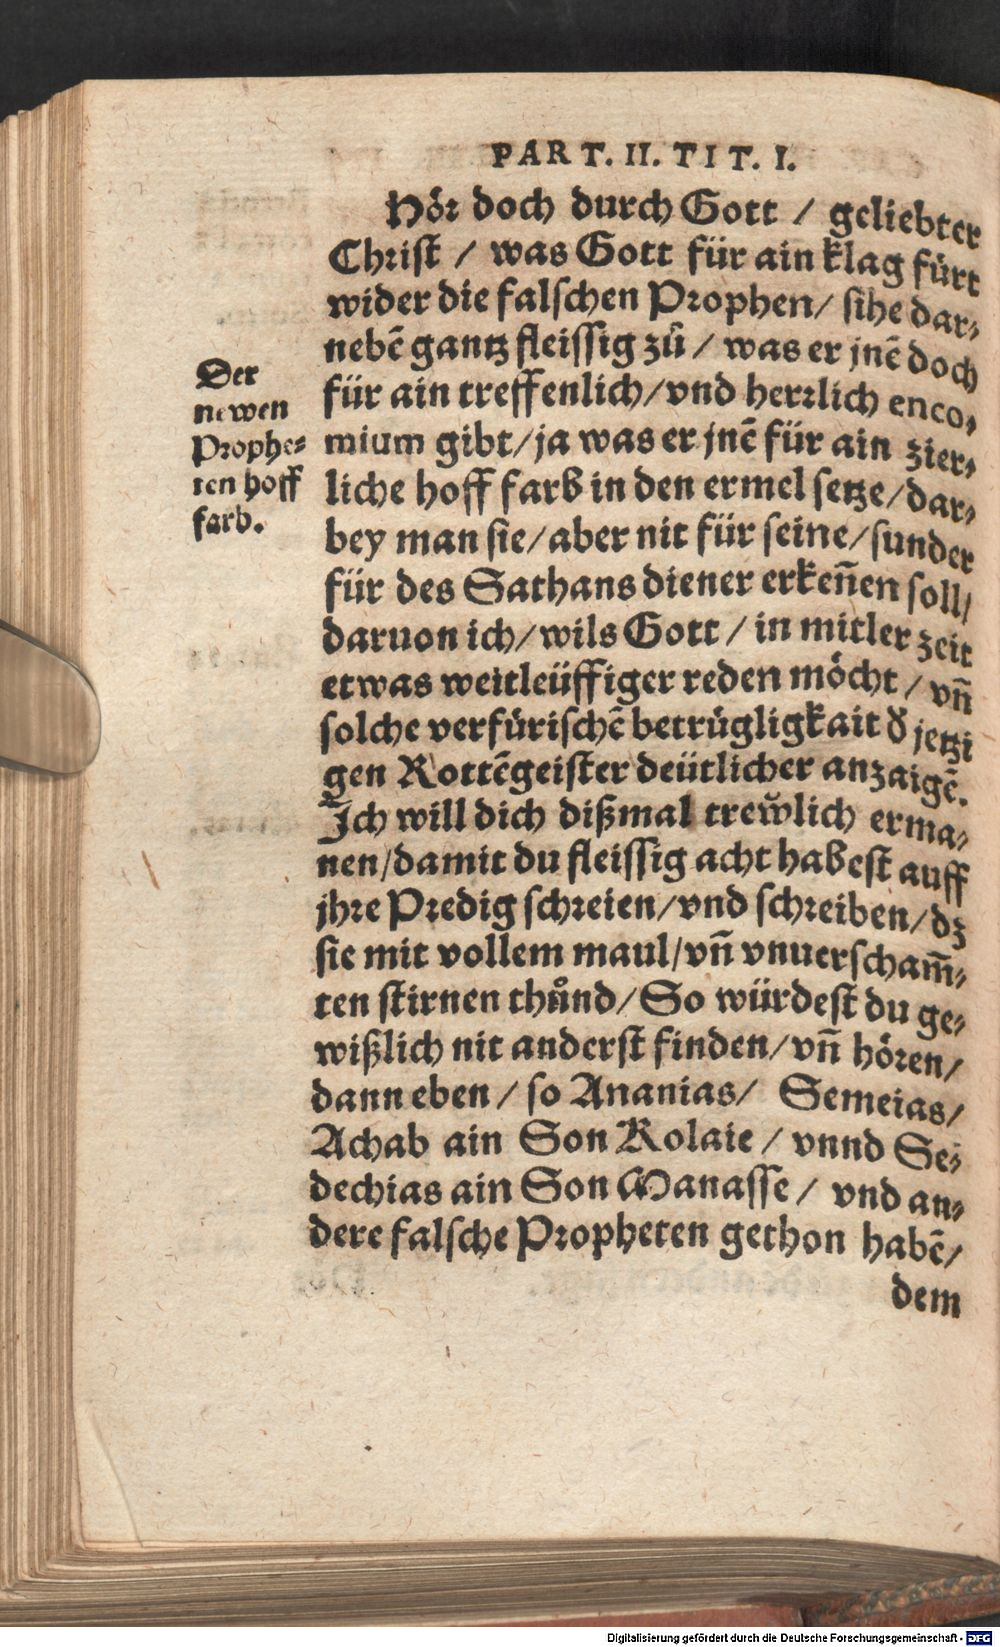 PART. II. TIT. I.
Hör doch durch Gott / geliebter
Christ / was Gott für ain klag fürt
wider die falschen Prophen/ sihe dar-
nebē gantz fleissig zů / was er jnē doch
für ain treffenlich/vnd herrlich enco-
mium gibt/ja was er jnē für ain zier-
liche hoff farb in den ermel setze/dar-
bey man sie/aber nit für seine/sunder
für des Sathans diener erkeñen soll/
daruon ich/wils Gott / in mitler zeit
etwas weitleüffiger reden möcht / vñ
solche verfürischē betrügligkait d̕ jetzi
gen Rottēgeister deütlicher anzaigē.
Ich will dich dißmal trewlich erma-
nen/damit du fleissig acht habest auff
jhre Predig schreien/vnd schreiben/dz
sie mit vollem maul/vñ vnuerscham̄-
ten stirnen thůnd/So würdest du ge-
wißlich nit anderst finden/vñ hören/
dann eben / so Ananias/ Semeias/
Achab ain Son Kolaie / vnnd Se-
dechias ain Son Manasse / vnd an-
dere falsche Propheten gethon habē/
dem
Der
newen
Prophe-
ten hoff
farb.
Digitalisierung gefördert durch die Deutsche Forschungsgemeinschaft - DFG